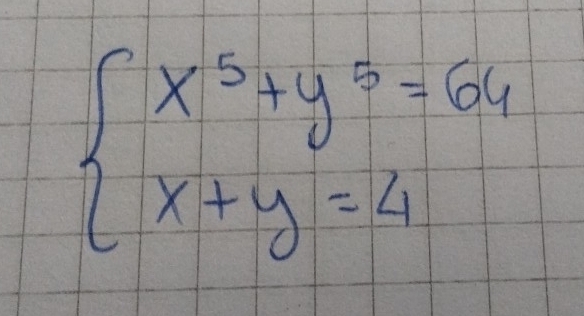 x⁵+y⁵=64
x+y=4